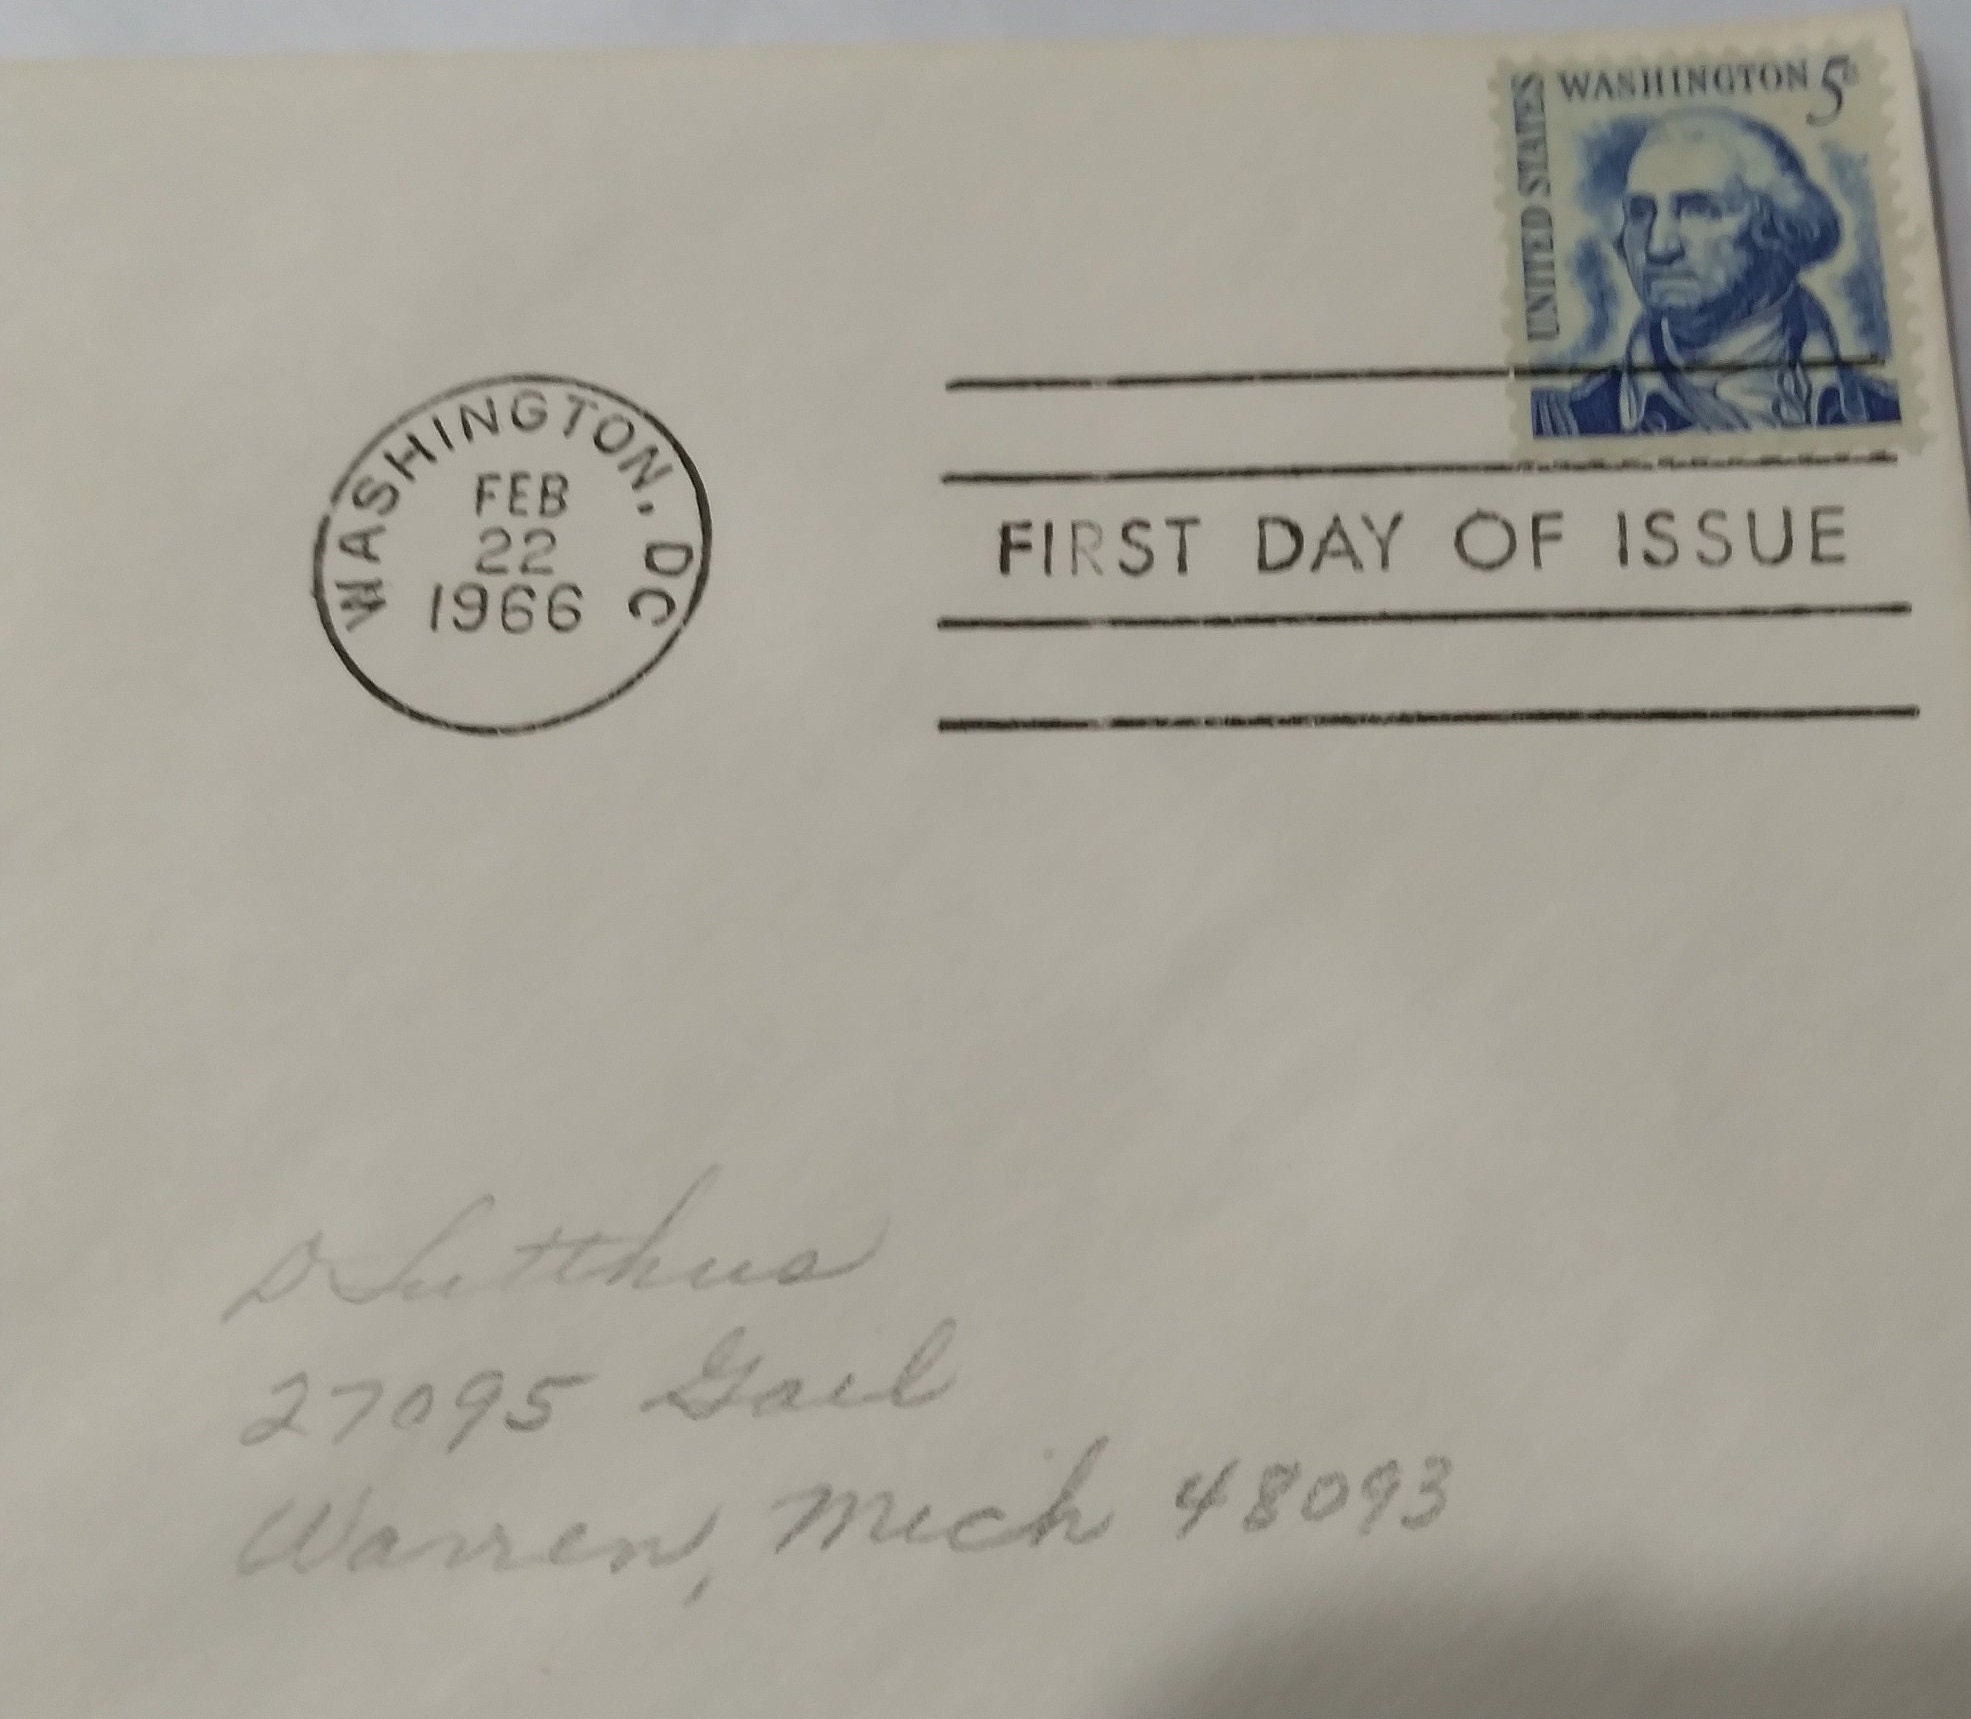 WASHINGTON 5c
UNITED STATES
WASHINGTON, DC
FEB
22
1966
FIRST DAY OF ISSUE
D
27095 Gail
Warren, Mich 48093